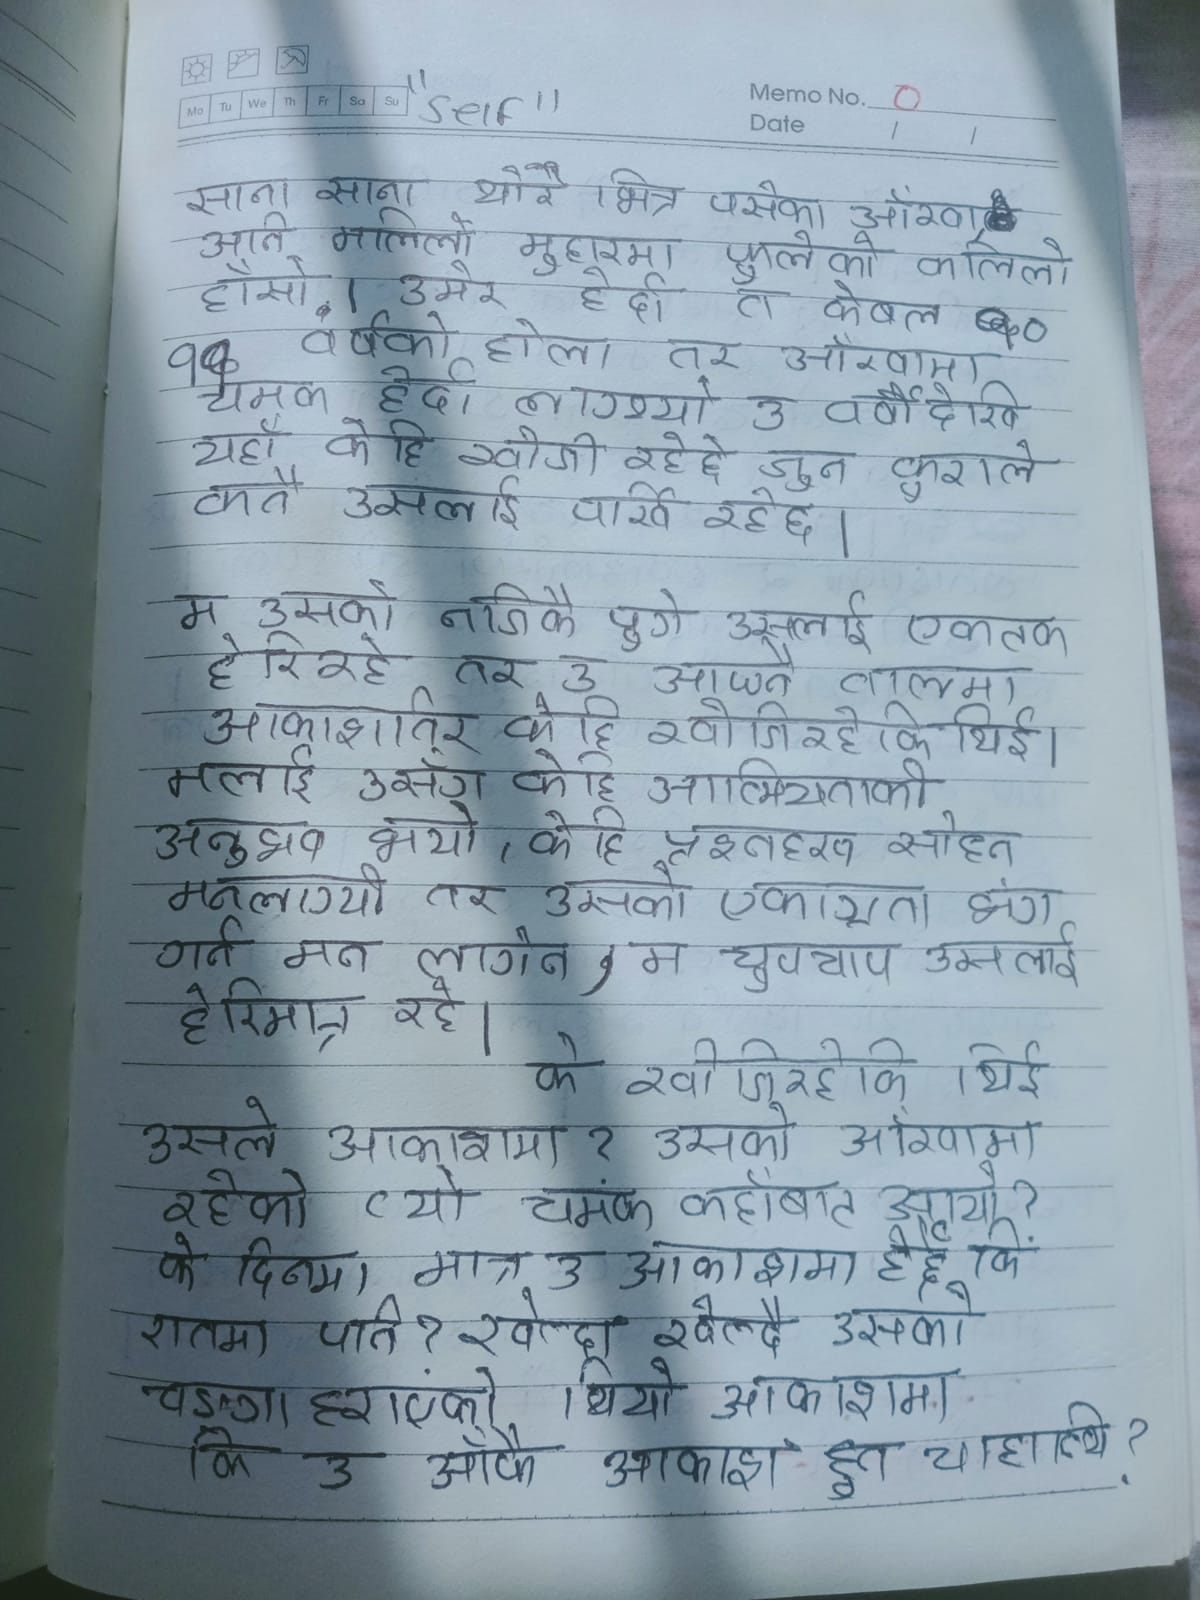 Mo Tu We Th Fr Sa Su
"Self"
Memo No. 0
Date / /
साना साना थोरै भित्र पसेका आँखा
अनि मलिलो मुहारमा फुलेको कलिलो
हाँसो । उमेर हेर्दा त केबल १०
११ वर्षको होला तर आँखामा
चमक हेर्दा लाग्थ्यो उ वर्षौदेखि
यहाँ केहि खोजी रहेछे जुन कुराले
कतै उसलाई पर्खि रहेछ ।
म उसको नजिकै पुगे उसलाई एकतक
हेरिरहे तर उ आफ्नै तालमा
आकाशतिर केहि खोजिरहेकि थिई।
मलाई उसँग केहि आत्मियताको
अनुभव भयो, केहि प्रश्नहरु सोध्न
मनलाग्यो तर उसको एकाग्रता भंग
गर्न मन लागेन, म चुपचाप उसलाई
हेरिमात्र रहे।
के खोजिरहेकि थिई
उसले आकाशमा ? उसको आँखामा
रहेको त्यो चमक कहाँबाट आयो?
के दिनमा मात्र उ आकाशमा हेर्छे कि
रातमा पनि? खेल्दा खेल्दै उसको
चङ्गा हराएको थियो आकाशमा
कि उ आँफै आकाश हुन चाहान्थि ?